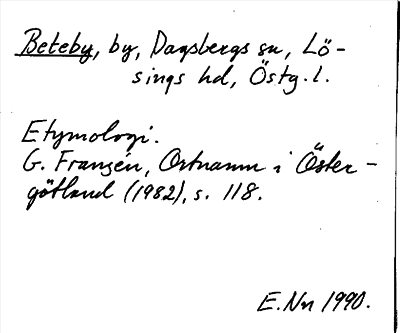 Beteby, by, Dagsbergs sn, Lö-
sings hd, Östg. l.
Etymologi.
G. Franzén, Ortnamn i Öster-
götland (1982), s. 118.
E. Nn 1990.